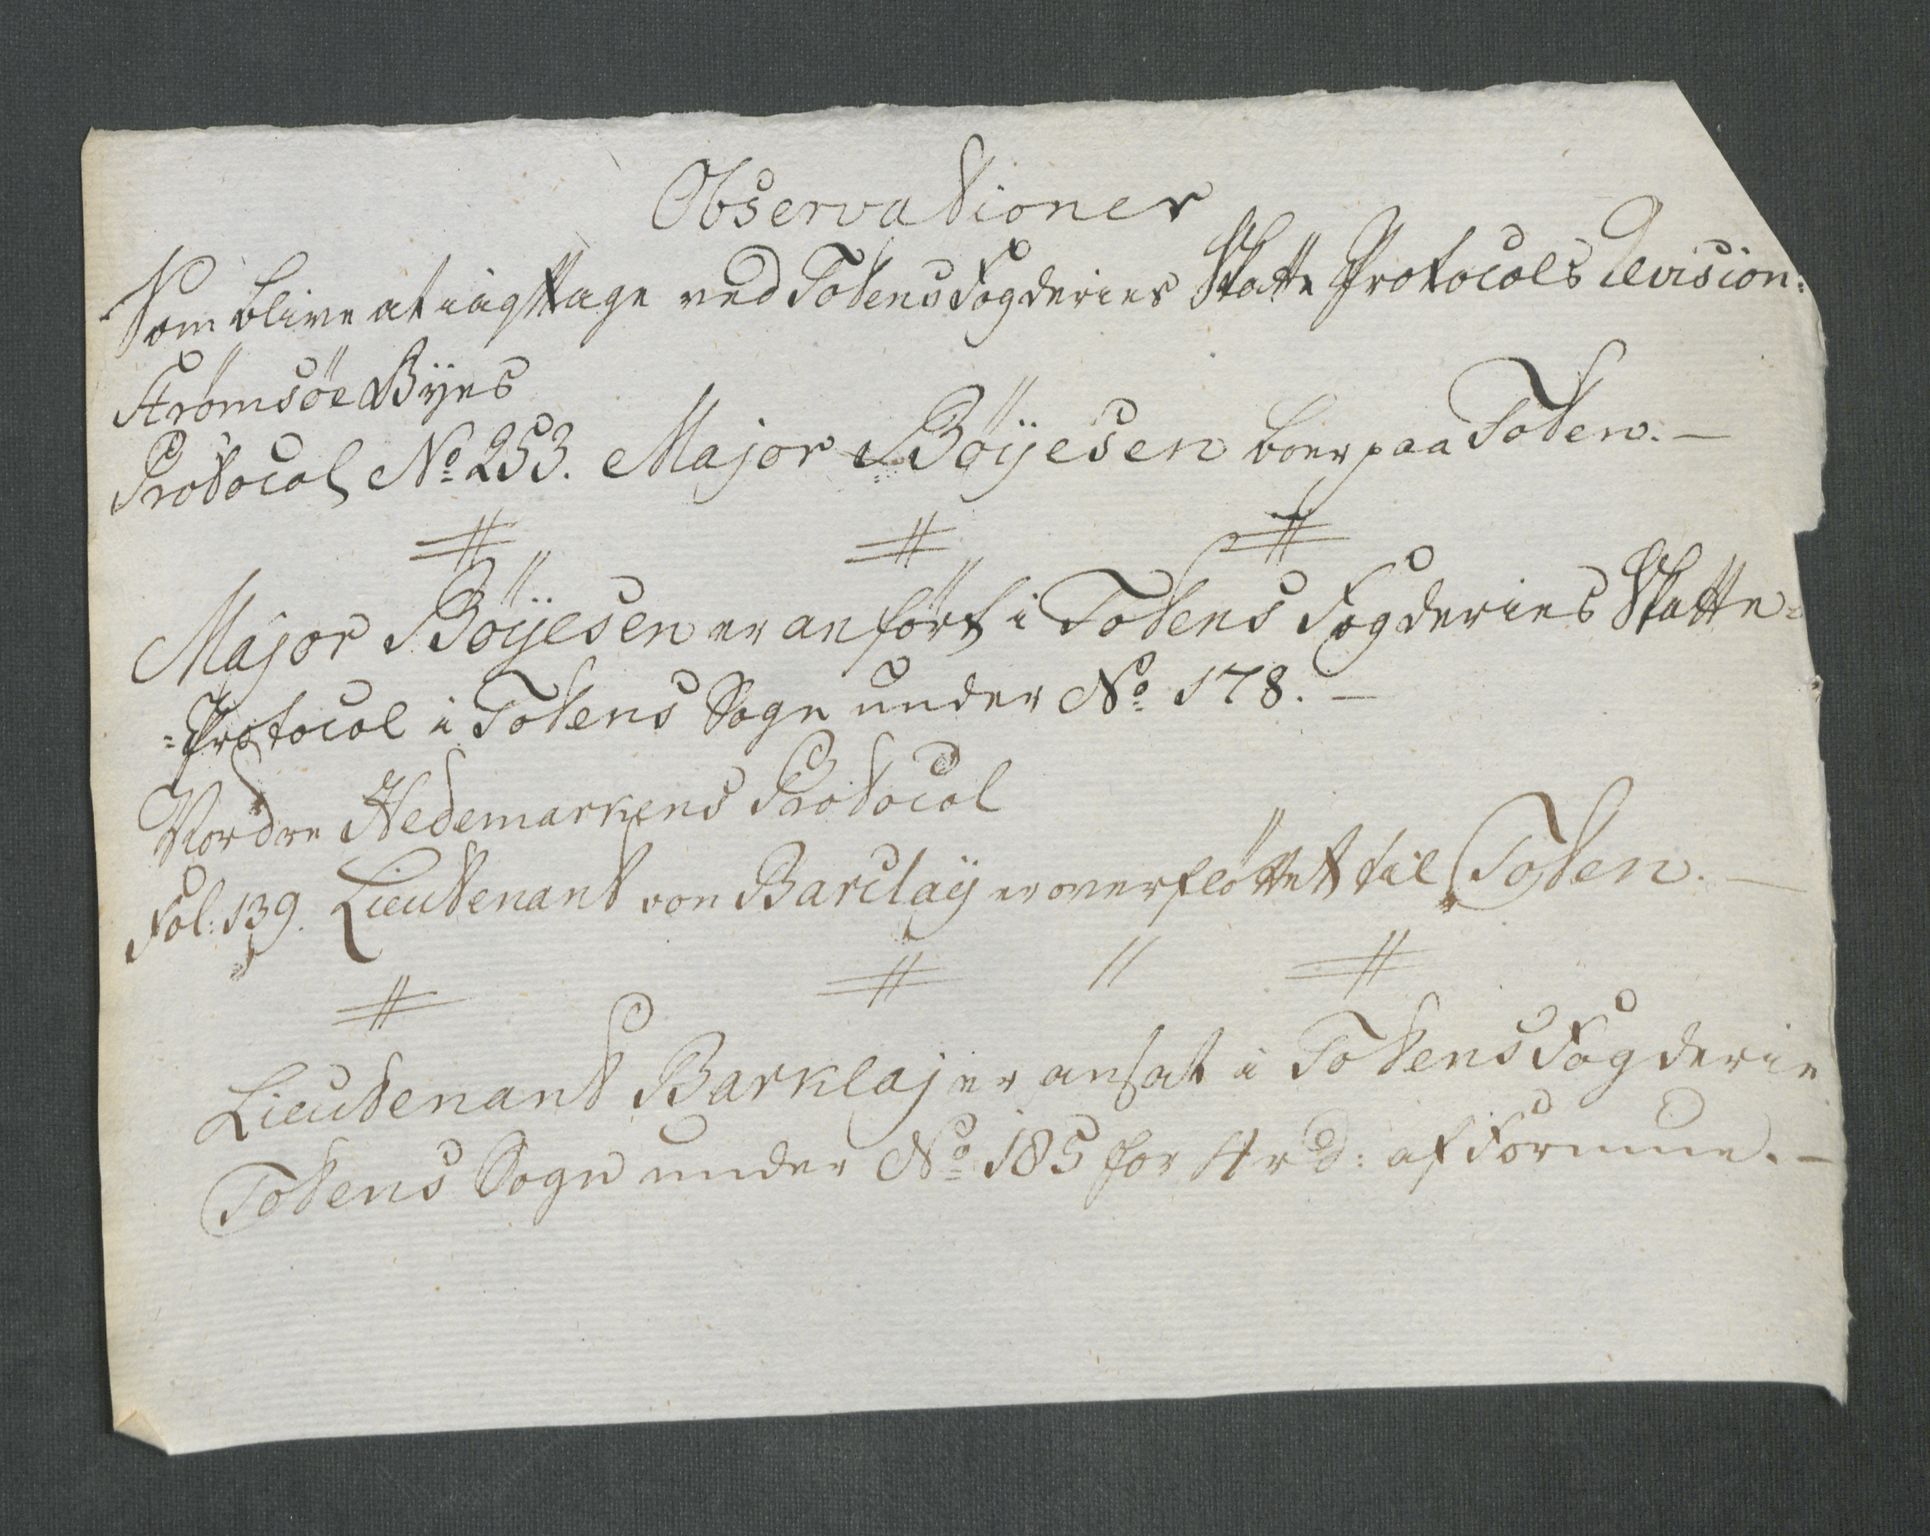 Observationer
Som blive at iagttage ved Totens Fogderies Skatte Protocols Revision:
Strømsøe Byes
Protocol No 253. Major Bøÿesen boer paa Toten. —
Major Bøÿesen er anført i Totens Fogderies Skatte=
=Protocol i Totens Sogn under No 178. —
Nordre Hedemarkens Protocol
Fol: 139. Lieutenant von Barclaÿ er overfløttet til Toten. —
Lieutenant Barklaj er ansat i Totens Fogderie
Totens Sogn under No 185 for 4 rd: af Formue. —